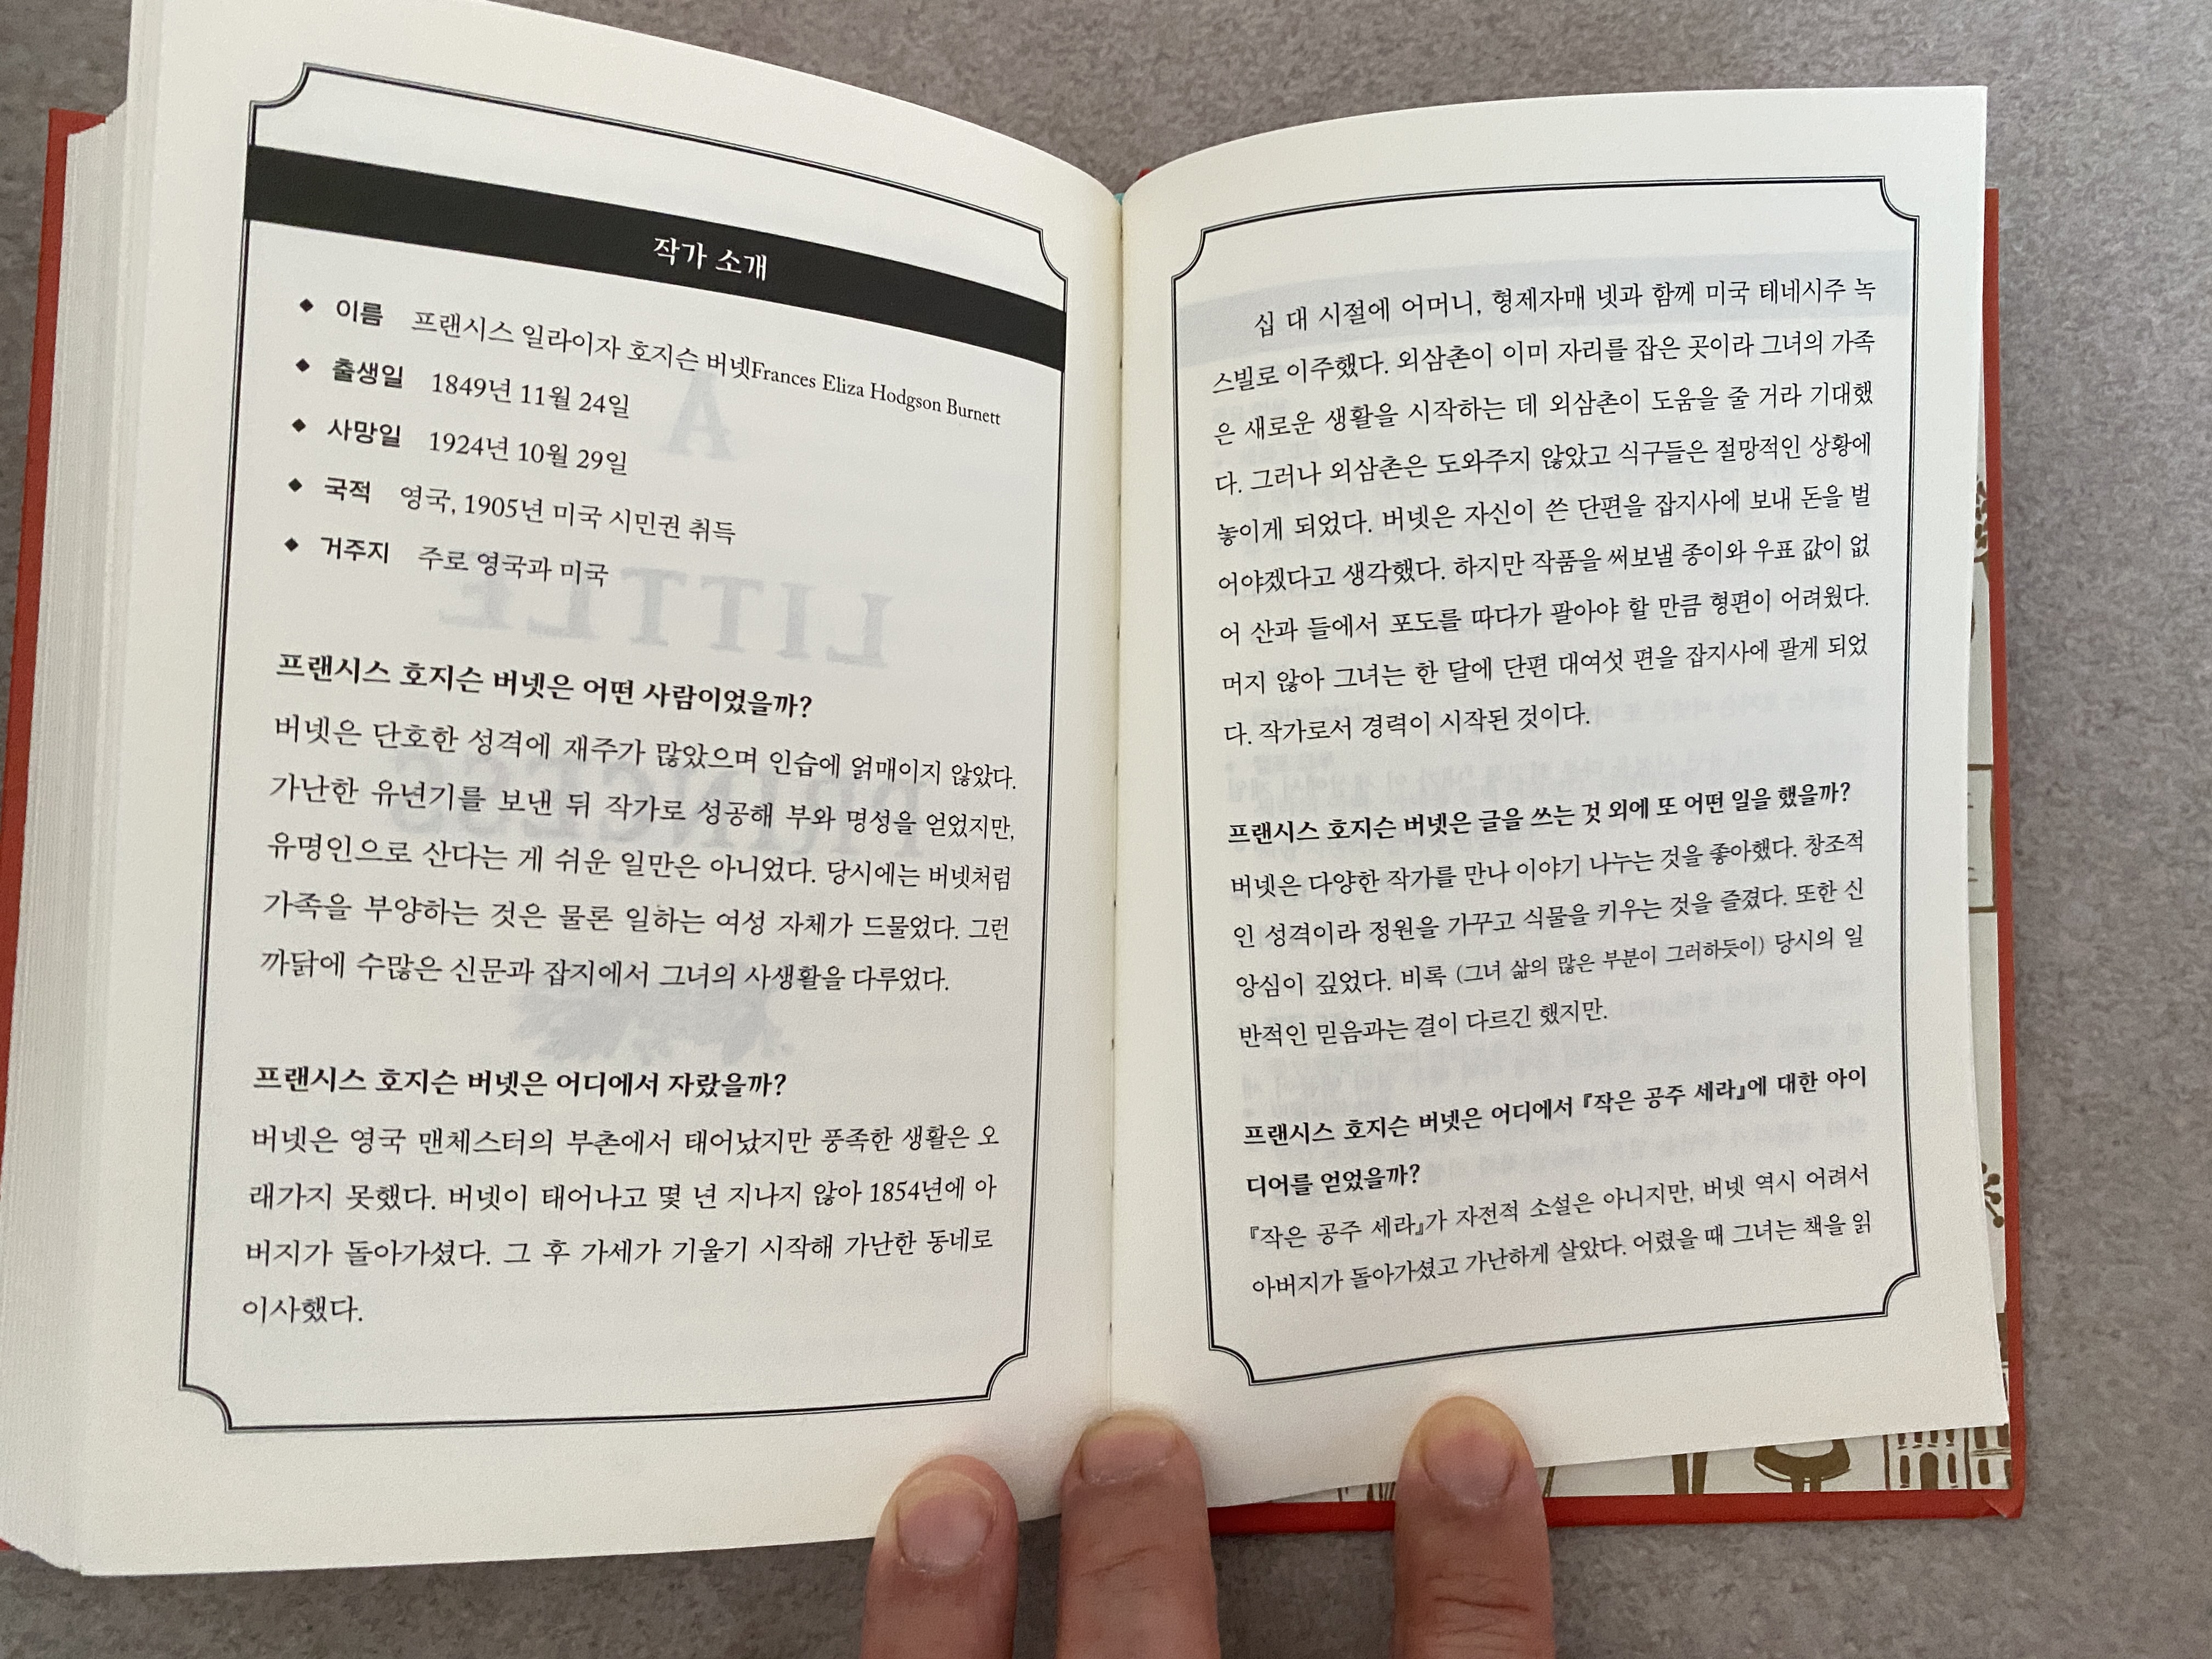 작가 소개
◆ 이름 프랜시스 일라이자 호지슨 버넷Frances Eliza Hodgson Burnett
◆ 출생일 1849년 11월 24일
◆ 사망일 1924년 10월 29일
◆ 국적 영국, 1905년 미국 시민권 취득
◆ 거주지 주로 영국과 미국
프랜시스 호지슨 버넷은 어떤 사람이었을까?
버넷은 단호한 성격에 재주가 많았으며 인습에 얽매이지 않았다.
가난한 유년기를 보낸 뒤 작가로 성공해 부와 명성을 얻었지만,
유명인으로 산다는 게 쉬운 일만은 아니었다. 당시에는 버넷처럼
가족을 부양하는 것은 물론 일하는 여성 자체가 드물었다. 그런
까닭에 수많은 신문과 잡지에서 그녀의 사생활을 다루었다.
프랜시스 호지슨 버넷은 어디에서 자랐을까?
버넷은 영국 맨체스터의 부촌에서 태어났지만 풍족한 생활은 오
래가지 못했다. 버넷이 태어나고 몇 년 지나지 않아 1854년에 아
버지가 돌아가셨다. 그 후 가세가 기울기 시작해 가난한 동네로
이사했다.
십 대 시절에 어머니, 형제자매 넷과 함께 미국 테네시주 녹
스빌로 이주했다. 외삼촌이 이미 자리를 잡은 곳이라 그녀의 가족
은 새로운 생활을 시작하는 데 외삼촌이 도움을 줄 거라 기대했
다. 그러나 외삼촌은 도와주지 않았고 식구들은 절망적인 상황에
놓이게 되었다. 버넷은 자신이 쓴 단편을 잡지사에 보내 돈을 벌
어야겠다고 생각했다. 하지만 작품을 써보낼 종이와 우표 값이 없
어 산과 들에서 포도를 따다가 팔아야 할 만큼 형편이 어려웠다.
머지 않아 그녀는 한 달에 단편 대여섯 편을 잡지사에 팔게 되었
다. 작가로서 경력이 시작된 것이다.
프랜시스 호지슨 버넷은 글을 쓰는 것 외에 또 어떤 일을 했을까?
버넷은 다양한 작가를 만나 이야기 나누는 것을 좋아했다. 창조적
인 성격이라 정원을 가꾸고 식물을 키우는 것을 즐겼다. 또한 신
앙심이 깊었다. 비록 (그녀 삶의 많은 부분이 그러하듯이) 당시의 일
반적인 믿음과는 결이 다르긴 했지만.
프랜시스 호지슨 버넷은 어디에서 『작은 공주 세라』에 대한 아이
디어를 얻었을까?
『작은 공주 세라』가 자전적 소설은 아니지만, 버넷 역시 어려서
아버지가 돌아가셨고 가난하게 살았다. 어렸을 때 그녀는 책을 읽